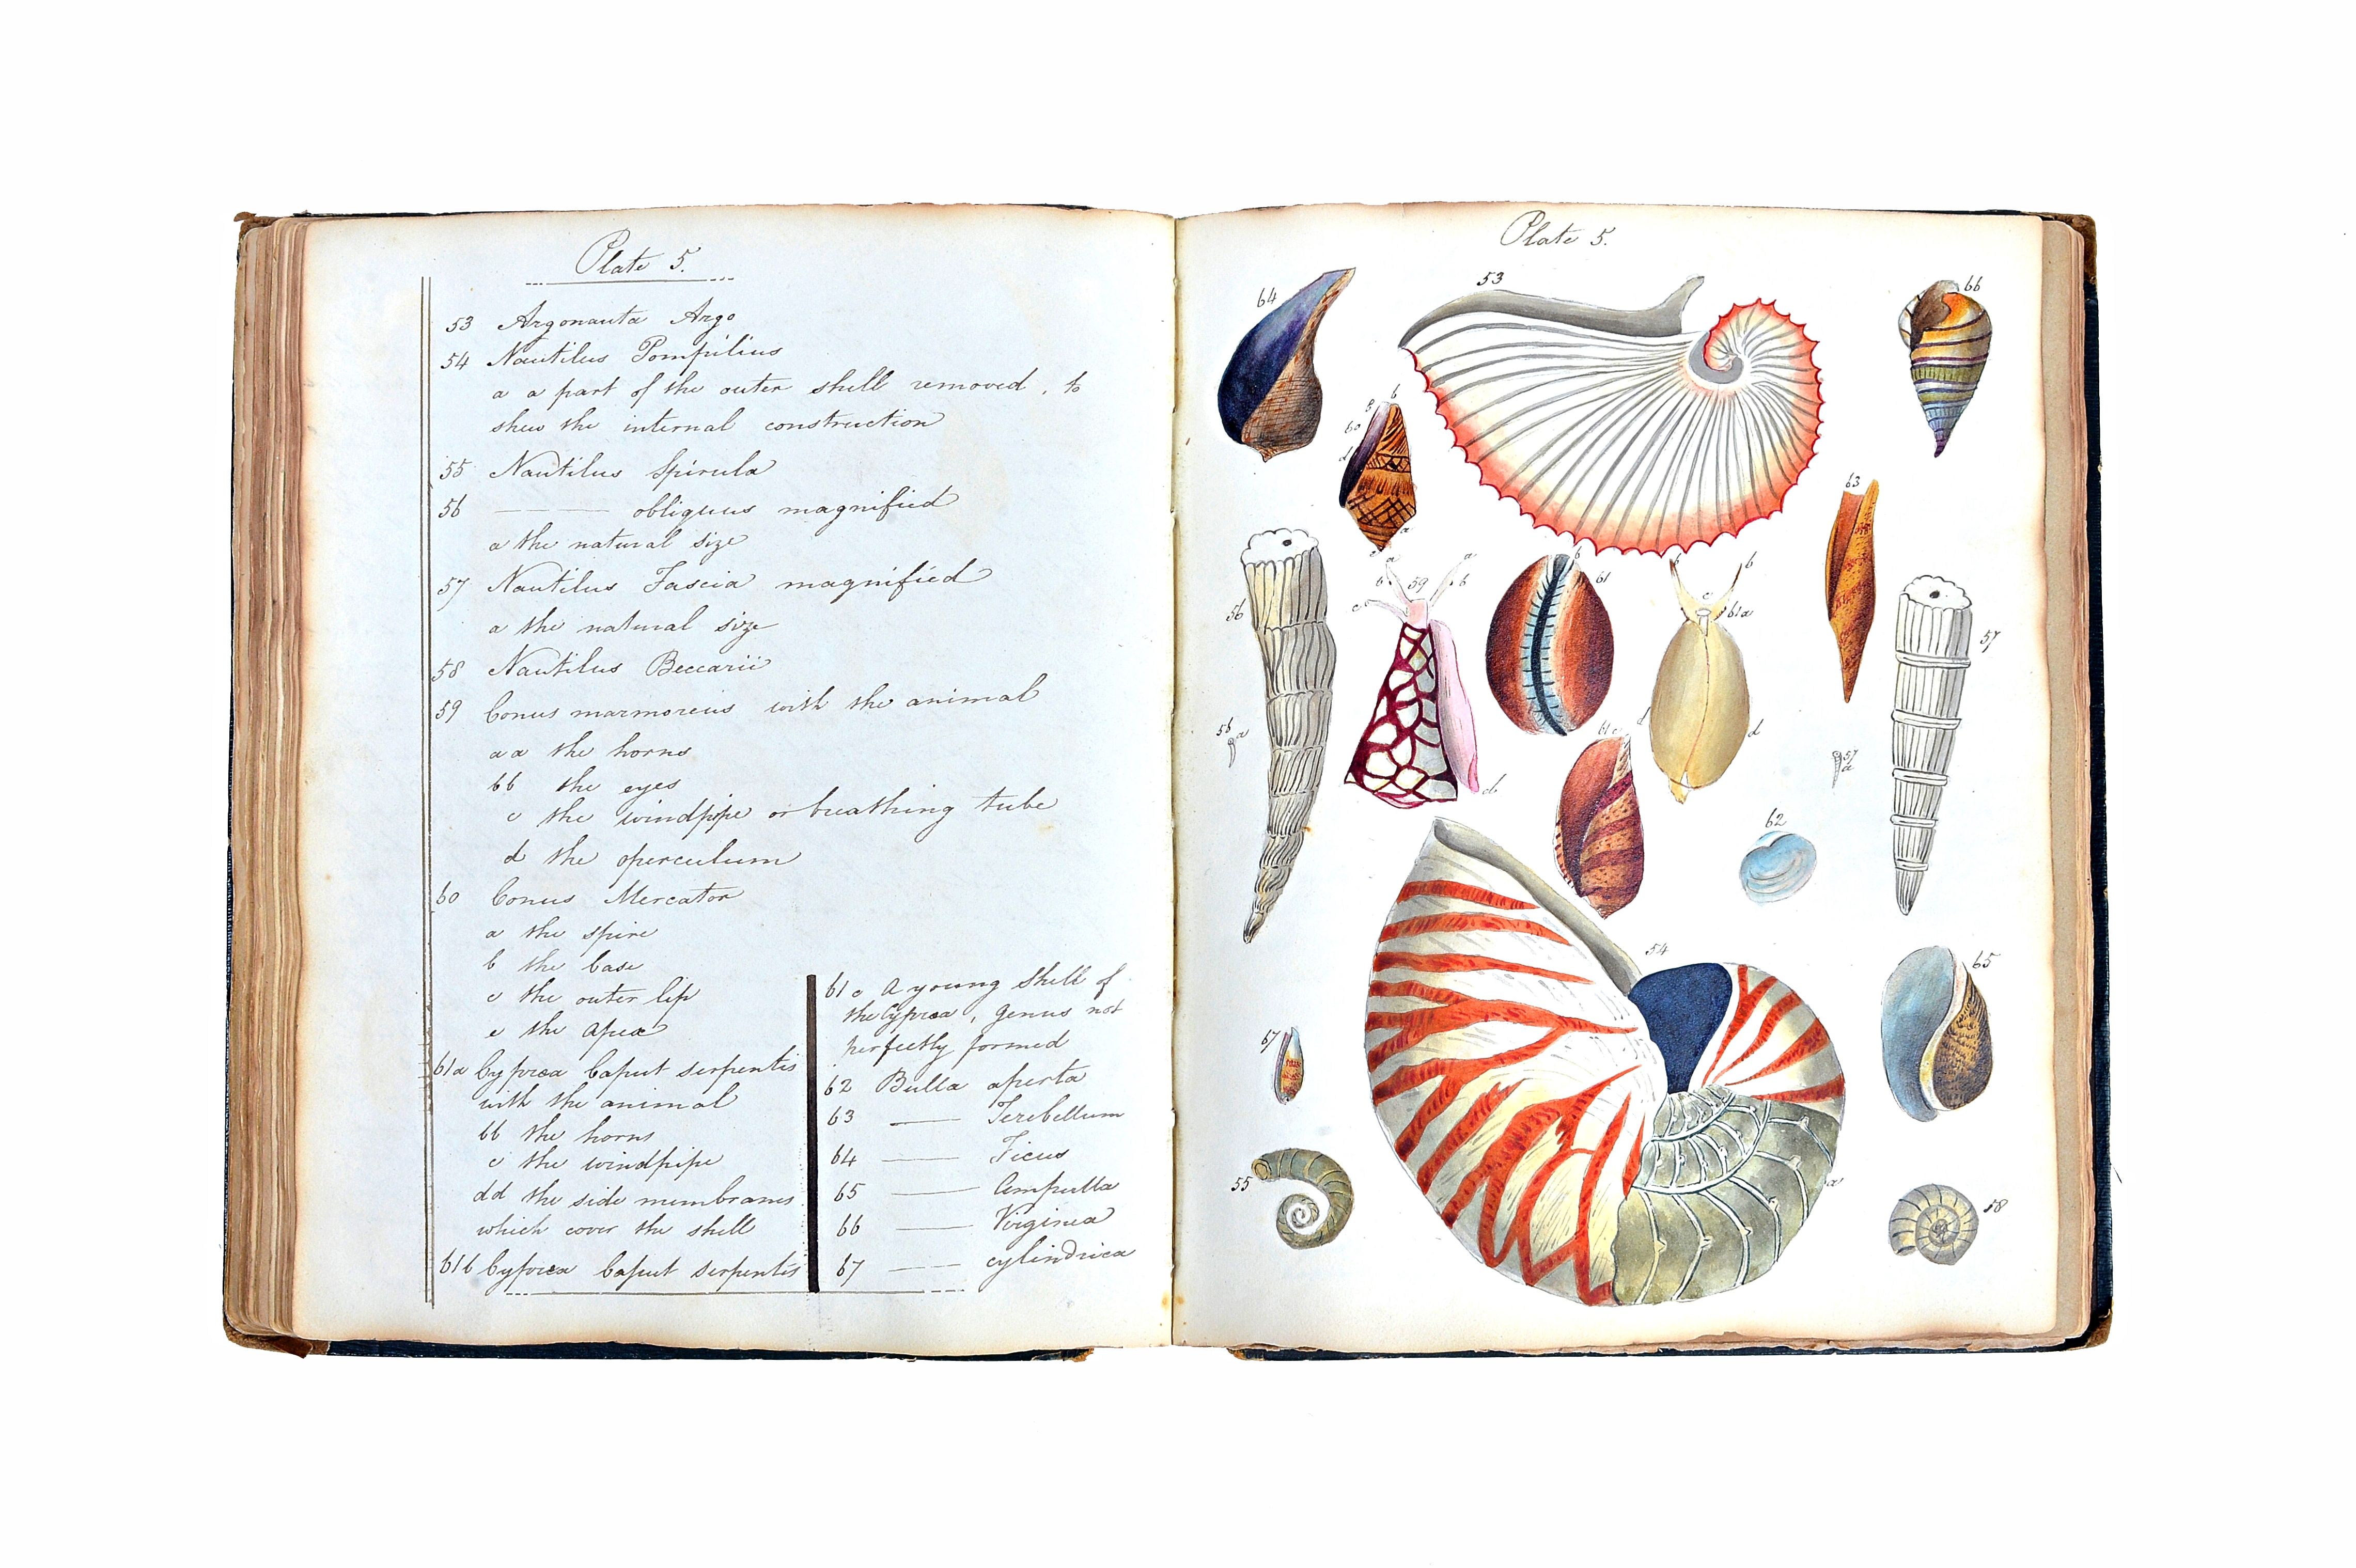 Plate 5.
53 Argonauta Argo
54 Nautilus Pompilius
a a part of the outer shell removed, to
shew the internal construction
55 Nautilus Spirula
56 ——— obliquus magnified
a the natural size
57 Nautilus Fascia magnified
a the natural size
58 Nautilus Beccarii
59 Conus marmoreus with the animal
aa the horns
bb the eyes
c the windpipe or breathing tube
d the operculum
60 Conus Mercator
a the spire
b the base
c the outer lip
e the apex
61a Cyprœa Caput serpentis
with the animal
bb the horns
c the windpipe
dd the side membranes
which cover the shell
61b Cyprœa Caput serpentis
61 c A young shell of
the Cyprœa, genus not
perfectly formed
62 Bulla aperta
63 —— Terebellum
64 —— Ficus
65 —— Ampulla
66 —— Virginea
67 —— cylindrica
Plate 5.
64
53
66
b
60
d
a
63
a
a
b
59
b
c
b
61
b
c
61a
56
57
56 a
61 c
d
d
57 a
62
54
65
67
55
a
58